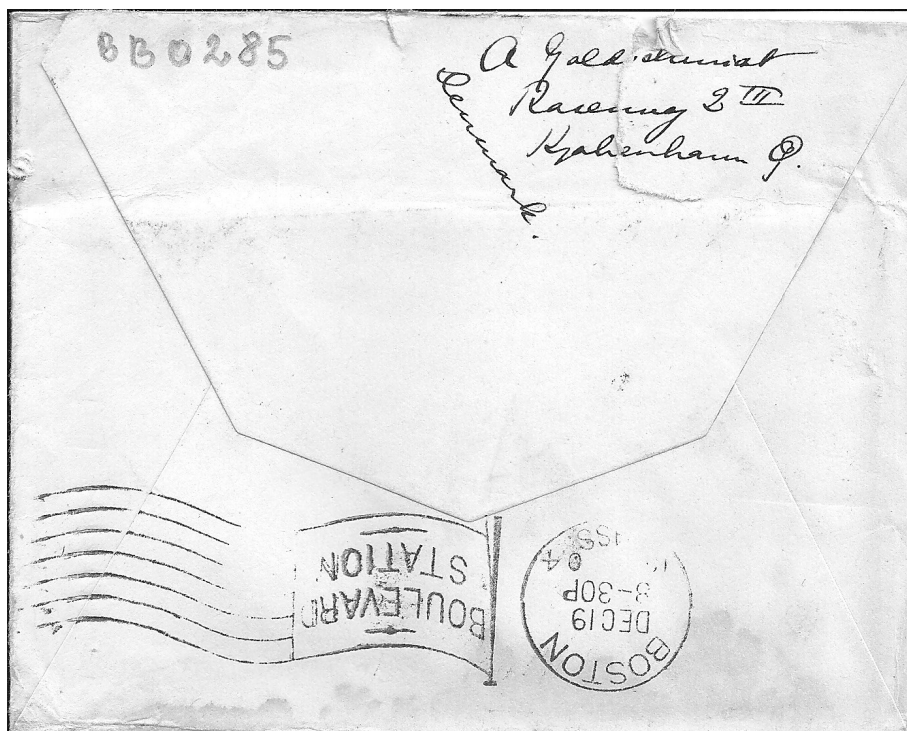 BB0285
A Goldschmidt
Rosenvej 2 III
Kjøbenhavn Ø.
Denmark.
BOULEVARD
STATION
BOSTON
DEC 19
3-30P